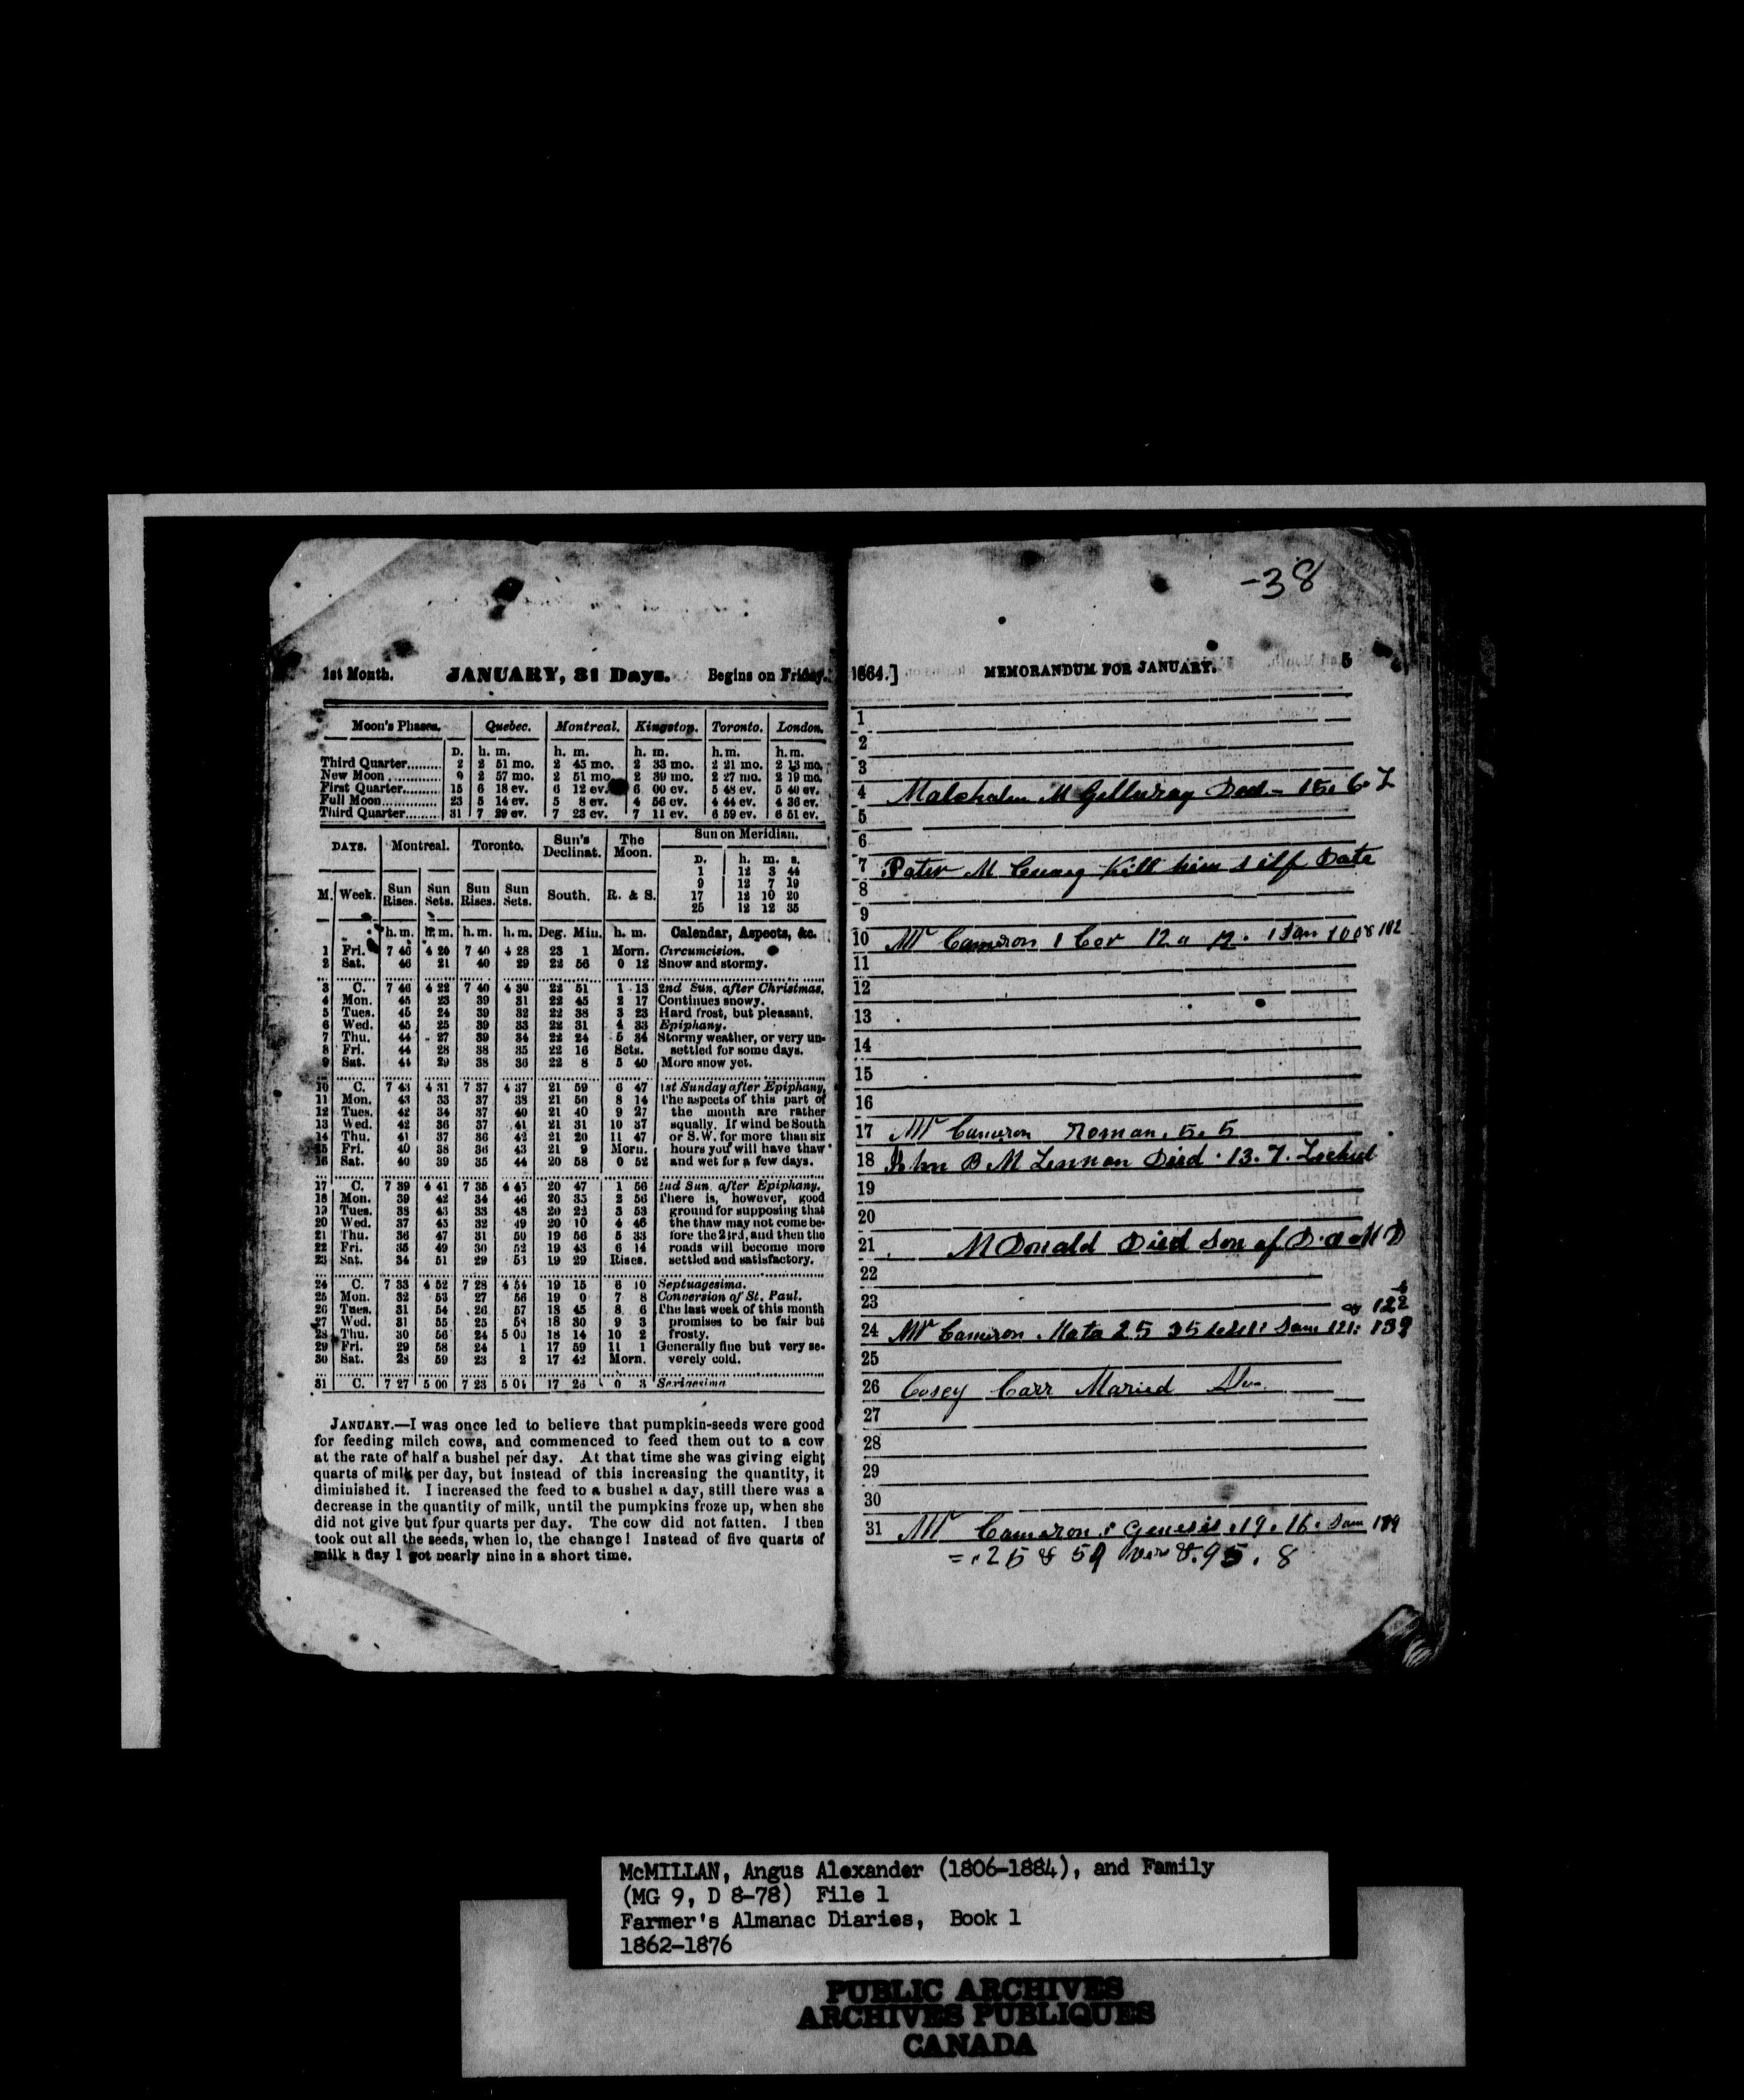 -38
1st Month. JANUARY, 31 Days. Begins on Friday.
Moon's Phases. Quebec. Montreal. Kingston. Toronto. London.
D. h. m. h. m. h. m. h. m. h. m.
Third Quarter......... 2 2 51 mo. 2 45 mo. 2 33 mo. 2 21 mo. 2 13 mo.
New Moon ............. 9 2 57 mo. 2 51 mo. 2 39 mo. 2 27 mo. 2 19 mo.
First Quarter.......... 15 6 18 ev. 6 12 ev. 6 00 ev. 5 48 ev. 5 40 ev.
Full Moon............. 23 5 14 ev. 5 8 ev. 4 56 ev. 4 44 ev. 4 36 ev.
Third Quarter......... 31 7 29 ev. 7 23 ev. 7 11 ev. 6 59 ev. 6 51 ev.
DAYS. Montreal. Toronto. Sun's Declinat. The Moon. Sun on Meridian.
D. h. m. s.
1 12 3 44
9 12 7 19
17 12 10 20
25 12 12 35
M. Week. Sun Rises. Sun Sets. Sun Rises. Sun Sets. South. R. & S.
h. m. h. m. h. m. h. m. Deg. Min. h. m. Calendar, Aspects, &c.
1 Fri. 7 46 4 20 7 40 4 28 23 1 Morn. Circumcision.
2 Sat. 46 21 40 29 22 56 0 12 Snow and stormy.
3 C. 7 46 4 22 7 40 4 30 22 51 1 13 2nd Sun. after Christmas.
4 Mon. 45 23 39 31 22 45 2 17 Continues snowy.
5 Tues. 45 24 39 32 22 38 3 23 Hard frost, but pleasant.
6 Wed. 45 25 39 33 22 31 4 33 Epiphany.
7 Thu. 44 27 39 34 22 24 5 34 Stormy weather, or very un-
8 Fri. 44 28 38 35 22 16 Sets. settled for some days.
9 Sat. 44 29 38 36 22 8 5 40 More snow yet.
10 C. 7 43 4 31 7 37 4 37 21 59 6 47 1st Sunday after Epiphany.
11 Mon. 43 33 37 38 21 50 8 14 The aspects of this part of
12 Tues. 42 34 37 40 21 40 9 27 the month are rather
13 Wed. 42 36 37 41 21 31 10 37 squally. If wind be South
14 Thu. 41 37 36 42 21 20 11 47 or S.W. for more than six
15 Fri. 40 38 36 43 21 9 Morn. hours you will have thaw
16 Sat. 40 39 35 44 20 58 0 52 and wet for a few days.
17 C. 7 39 4 41 7 35 4 45 20 47 1 56 2nd Sun. after Epiphany.
18 Mon. 39 42 34 46 20 35 2 56 There is, however, good
19 Tues. 38 43 33 48 20 22 3 53 ground for supposing that
20 Wed. 37 45 32 49 20 10 4 46 the thaw may not come be-
21 Thu. 36 47 31 50 19 56 5 33 fore the 23rd, and then the
22 Fri. 35 49 30 52 19 43 6 14 roads will become more
23 Sat. 34 51 29 53 19 29 Rises. settled and satisfactory.
24 C. 7 33 4 52 7 28 4 54 19 15 6 10 Septuagesima.
25 Mon. 32 53 27 56 19 0 7 8 Conversion of St. Paul.
26 Tues. 31 54 26 57 18 45 8 6 The last week of this month
27 Wed. 31 55 25 58 18 30 9 3 promises to be fair but
28 Thu. 30 56 24 5 00 18 14 10 2 frosty.
29 Fri. 29 58 24 1 17 59 11 1 Generally fine but very se-
30 Sat. 28 59 23 2 17 42 Morn. verely cold.
31 C. 7 27 5 00 7 23 5 04 17 26 0 3 Sexagesima
JANUARY.—I was once led to believe that pumpkin-seeds were good
for feeding milch cows, and commenced to feed them out to a cow
at the rate of half a bushel per day. At that time she was giving eight
quarts of milk per day, but instead of this increasing the quantity, it
diminished it. I increased the feed to a bushel a day, still there was a
decrease in the quantity of milk, until the pumpkins froze up, when she
did not give but four quarts per day. The cow did not fatten. I then
took out all the seeds, when lo, the change! Instead of five quarts of
milk a day I got nearly nine in a short time.
1864.] MEMORANDUM FOR JANUARY. 5
1
2
3
4 Malcholm M Gilluray Ded - 15. 6
5
6
7 Pater M Cuaig Kill him silf Date
8
9
10 Mr Cameron 1 Cor 12 a 12.
11
12
13
14
15
16
17 Mr Cameron Roman. 5. 5
18 John B M Lennon Died 13. 7.
19
20
21 M Donald Died Son of D.
22
23 122
24 Mr Cameron Mata 25 35 139
25
26 Cosey Carr Maried
27
28
29
30
31 Mr Cameron Genesis 19. 16.
= 25 & 59 8. 95. 8
McMILLAN, Angus Alexander (1806-1884), and Family
(MG 9, D 8-78) File 1
Farmer's Almanac Diaries, Book 1
1862-1876
PUBLIC ARCHIVES
ARCHIVES PUBLIQUES
CANADA